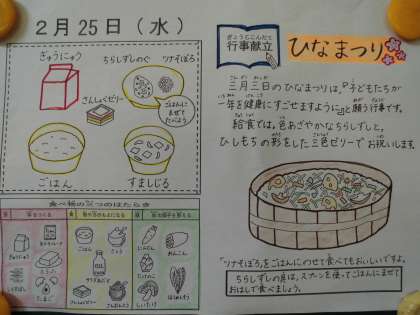 2月25日（水）
ぎゅうにゅう
ちらしずしのぐ
ツナそぼろ
さんしょくゼリー
ごはんに
まぜて
たべよう
ごはん
すましじる
食べ物の三つのはたらき
ぎょうじこんだて
行事献立
ひなまつり
三月三日のひなまつりは、『子どもたちが
一年を健康にすごせますように』と願う行事です。
給食では、色あざやかなちらしずしと、
ひしもちの形をした三色ゼリーでお祝いします。
「ツナそぼろ」をごはんにのせて食べてもおいしいですよ。
ちらしずしの具は、スプーンを使ってごはんにまぜて
おはしで食べましょう。
ぎゅうにゅう
ごはん
さとう
にんじん
たまご
さんしょくゼリー
しいたけ